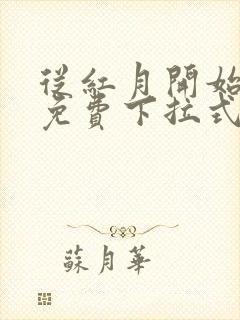 從紅月開始
免費下拉式
蘇月華